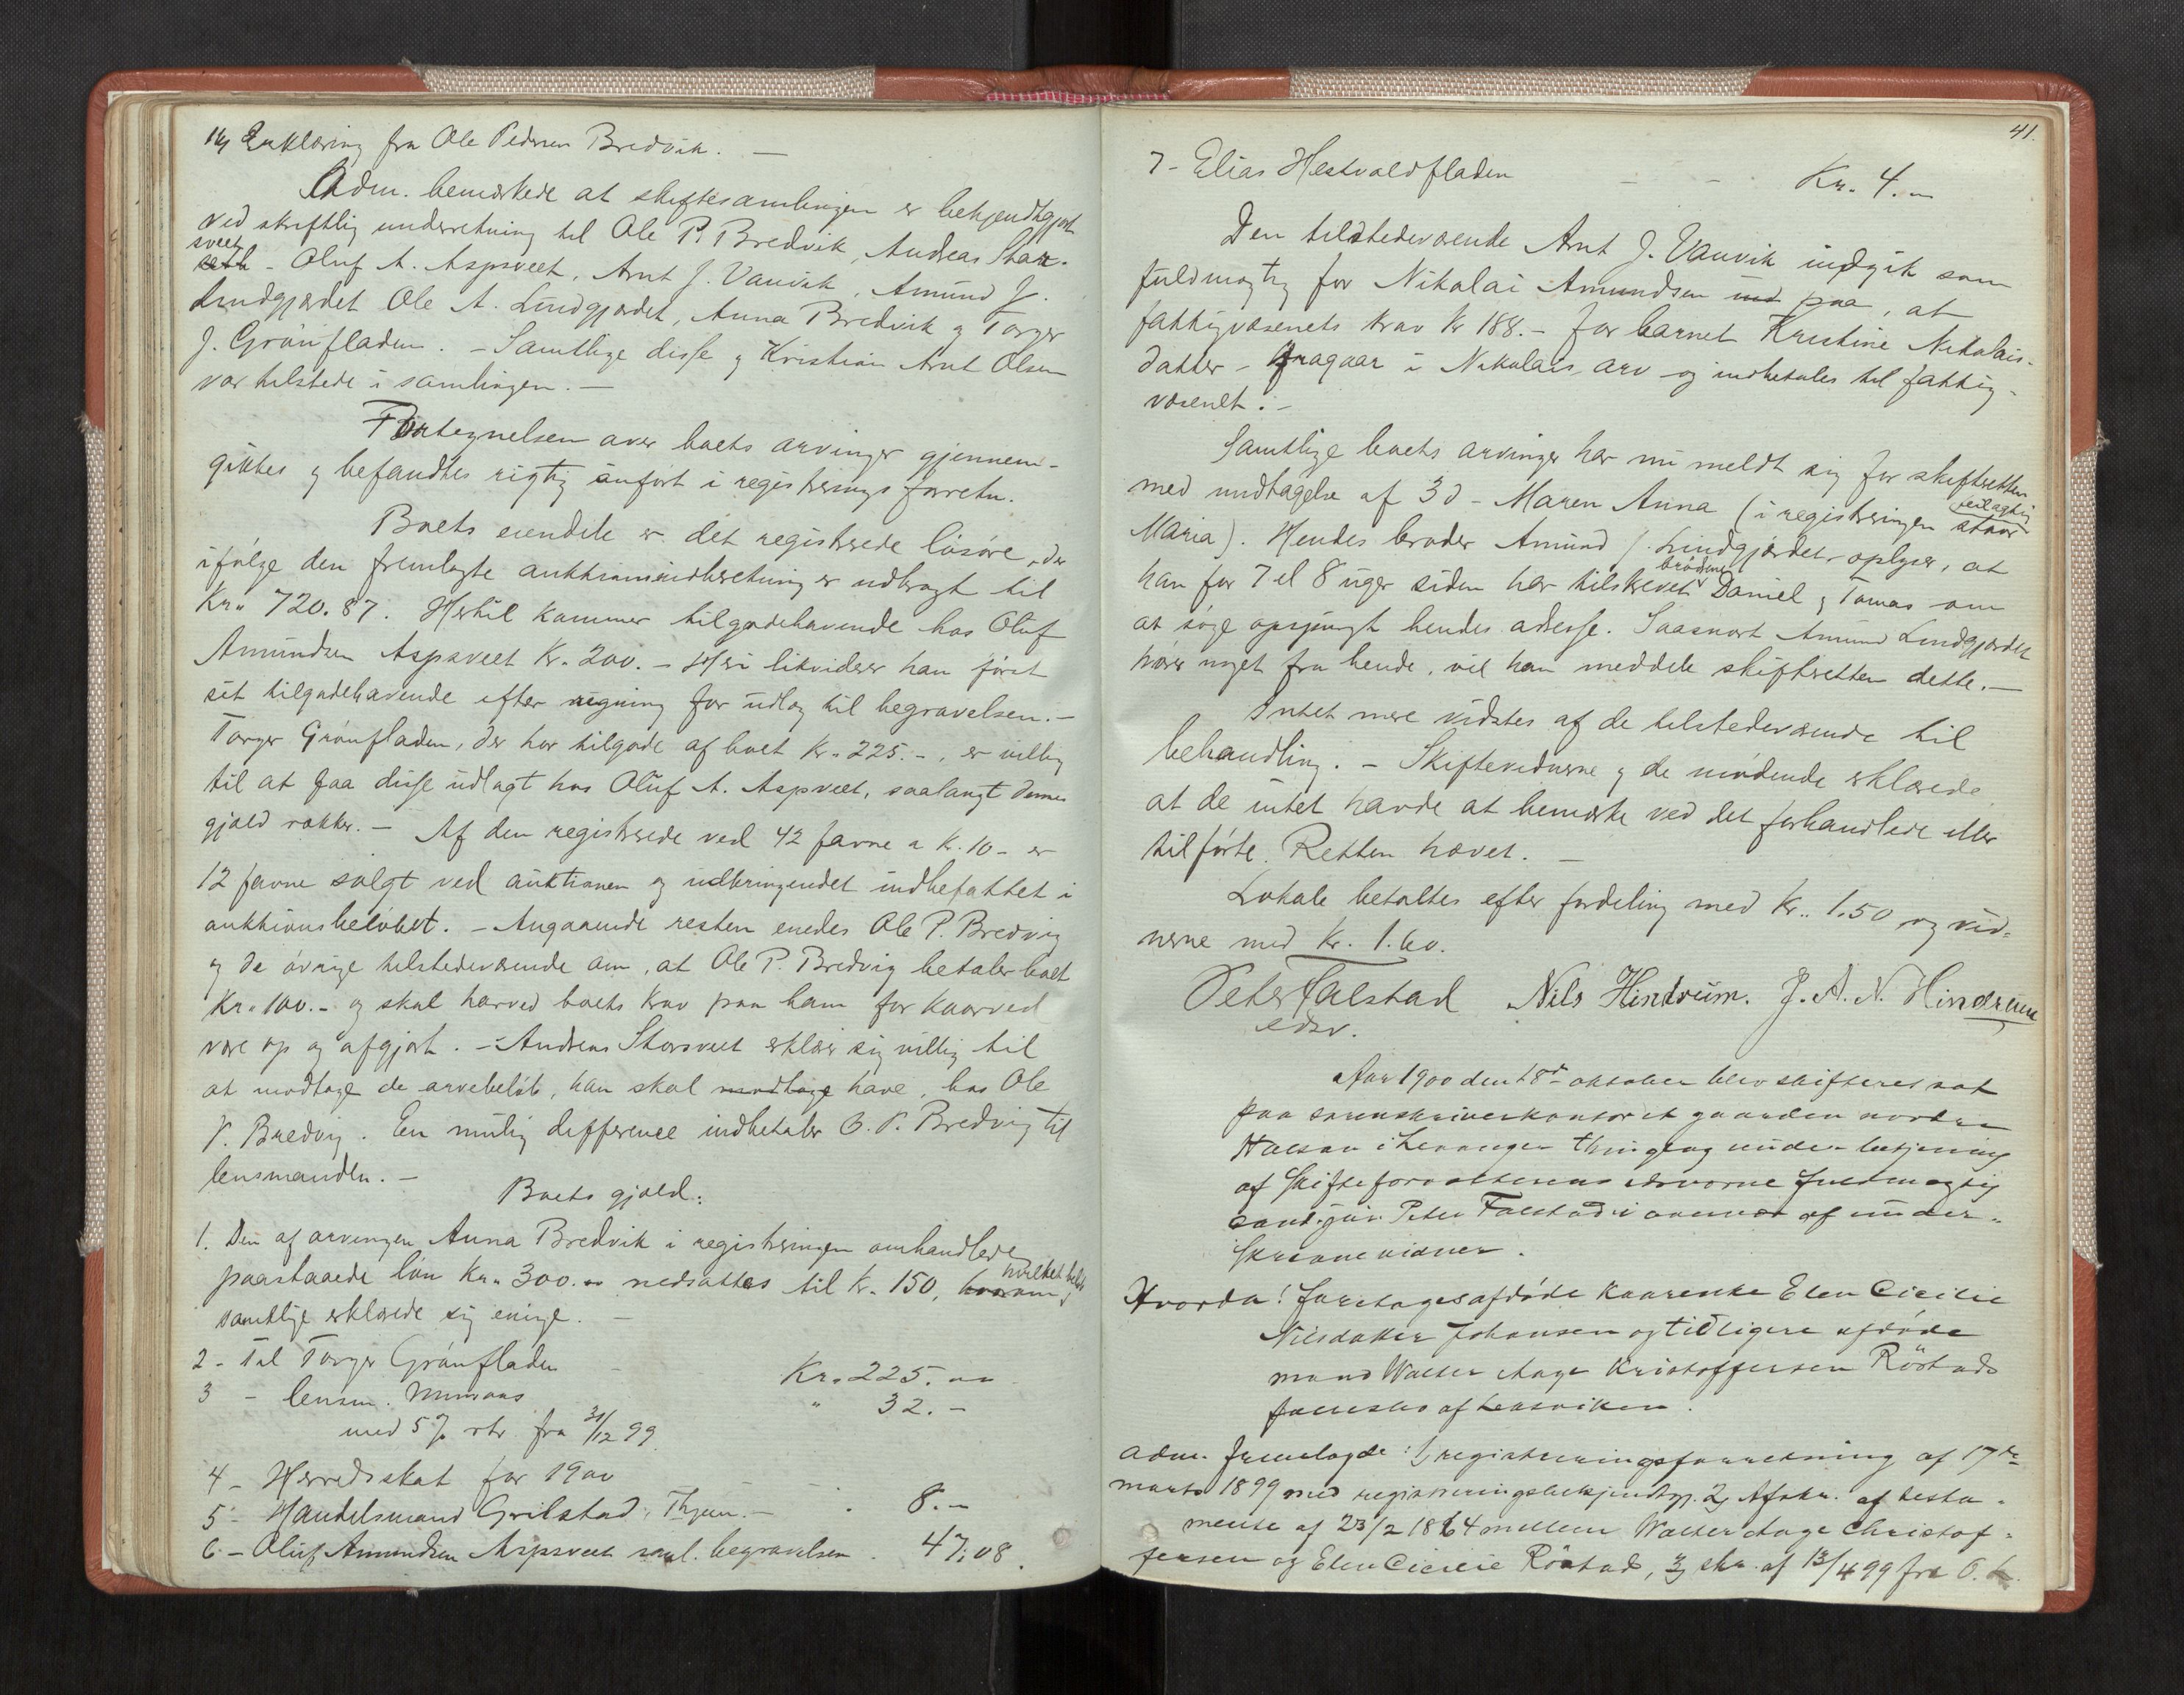 14) Erklæring fra Ole Pedersen Bredvik. —
Adm. bemærkede at skiftesamlingen er bekjendtgjort
ved skriftlig underretning til Ole P. Bredvik, Andreas Stor-
sveet - Oluf A. Aspsveet, Arnt J. Vanvik, Amund J.
Lindgjærdet Ole A. Lindgjærdet, Anna Bredvik og Torger
J. Grönfladen. - Samtlige disse og Kristian Arnt Olsen
var tilstede i samlingen. —
Fortegnelsen over boets arvinger gjennem-
gikkes og befandtes rigtig anført i registreringsforretn.
Boets eiendele er det registrerede lösöre, der
ifölge den fremlagte auktionsindberetning er udbragt til
Kr. 720.87. Hertil kommer tilgodehavende hos Oluf
Amundsen Aspsveet Kr. 200. - Heri likviderer han först
sit tilgodehavende efter regning for udlæg til begravelsen. -
Torger Grönfladen, der har tilgode af boet Kr. 225.-, er villig
til at faa disse udlagt hos Oluf A. Aspsveet, saalangt dennes
gjæld rækker. - Af den registrerede ved 42 favne a K. 10 - er
12 favne solgt ved auktionen og udbringendet indbefattet i
auktionsbelöbet. - Angaaende resten enedes Ole P. Bredvig
og de övrige tilstedeværende om, at Ole P. Bredvig betaler boet
Kr. 100.- og skal herved boets krav paa ham for kaarved
være op og afgjort. - Andreas Storsveet erklær sig villig til
at modtage de arvebelöb, han skal modtage have, hos Ole
P. Bredvig. En mulig difference indbetaler O. P. Bredvig til
lensmanden. -
Boets gjæld:
1. Den af arvingen Anna Bredvik i registreringen omhandlede
paastaaede lön Kr. 300.- nedsattes til Kr. 150, hvorom hvilket
samtlige erklærede sig enige. —
2 - Til Torger Grönfladen Kr. 225.00
3 - lensm. " 32.-
med 5% rtr. fra 31/12 99
4 - Herredsskat for 1900
5 - Handelsmand Grilstad, 8.-
6 - Oluf Amundsen Aspsveet begravelsen. 47.08.
41.
7 - Elias Hestvoldfladen - - Kr. 4.-
Den tilstedeværende Arnt J. Vanvik indgik som
fuldmægtig for Nikolai Amundsen ind paa, at
fattigvæsenets krav Kr 188.- for barnet Kristine Nikolais-
datter - fragaar i Nikolais arv og indbetales til fattig-
væsenet. -
Samtlige boets arvinger har nu meldt sig for skifteretten
med undtagelse af 3 d - Maren Anna (i registreringen feilagtig
Maria). Hendes broder Amund J. Lindgjærdet oplyser, at
han for 7 el 8 uger siden har tilskrevet brödrene Daniel og Tomas om
at söge opspurgt hendes adresse. Saasnart Amund Lindgjærdet
hører noget fra hende, vil han meddele skifteretten dette. —
Intet mere vidstes af de tilstedeværende til
behandling. - Skiftevidnerne og de mödende erklærede
at de intet havde at bemærke ved det forhandlede eller
tilförte. Retten hævet. —
Lokale betaltes efter fordeling med Kr. 1.50 og vid-
nerne med Kr. 1.60.
Peter Falstad Nils Hindrum. J. A. N. Hindrum
edsv.
Aar 1900 den 18de oktober blev skifteret sat
paa sorenskriverkontoret gaarden nordre
Halsan i Levanger thinglag under betjening
af Skifteforvalterens edsvorne fuldmægtig
cand. jur. Peter Falstad i overvær af under-
skrevne vidner.
Hvorda! foretages afdöde kaarenke Elen Cicilie
Nilsdatter Johansen og tidligere afdöde
mand Walter Aage Kristoffersen Röstads
fællesbo af Leksviken.
Adm. fremlagde: 1) registreringsforretning af 17de
marts 1899 med registreringsbekjendtgj. 2) Afskr. af testa-
mente af 23/2 1864 mellem Walter Aage Christof-
fersen og Elen Cicilie Röstad, 3) skr. af 13/4 99 fra O. L.